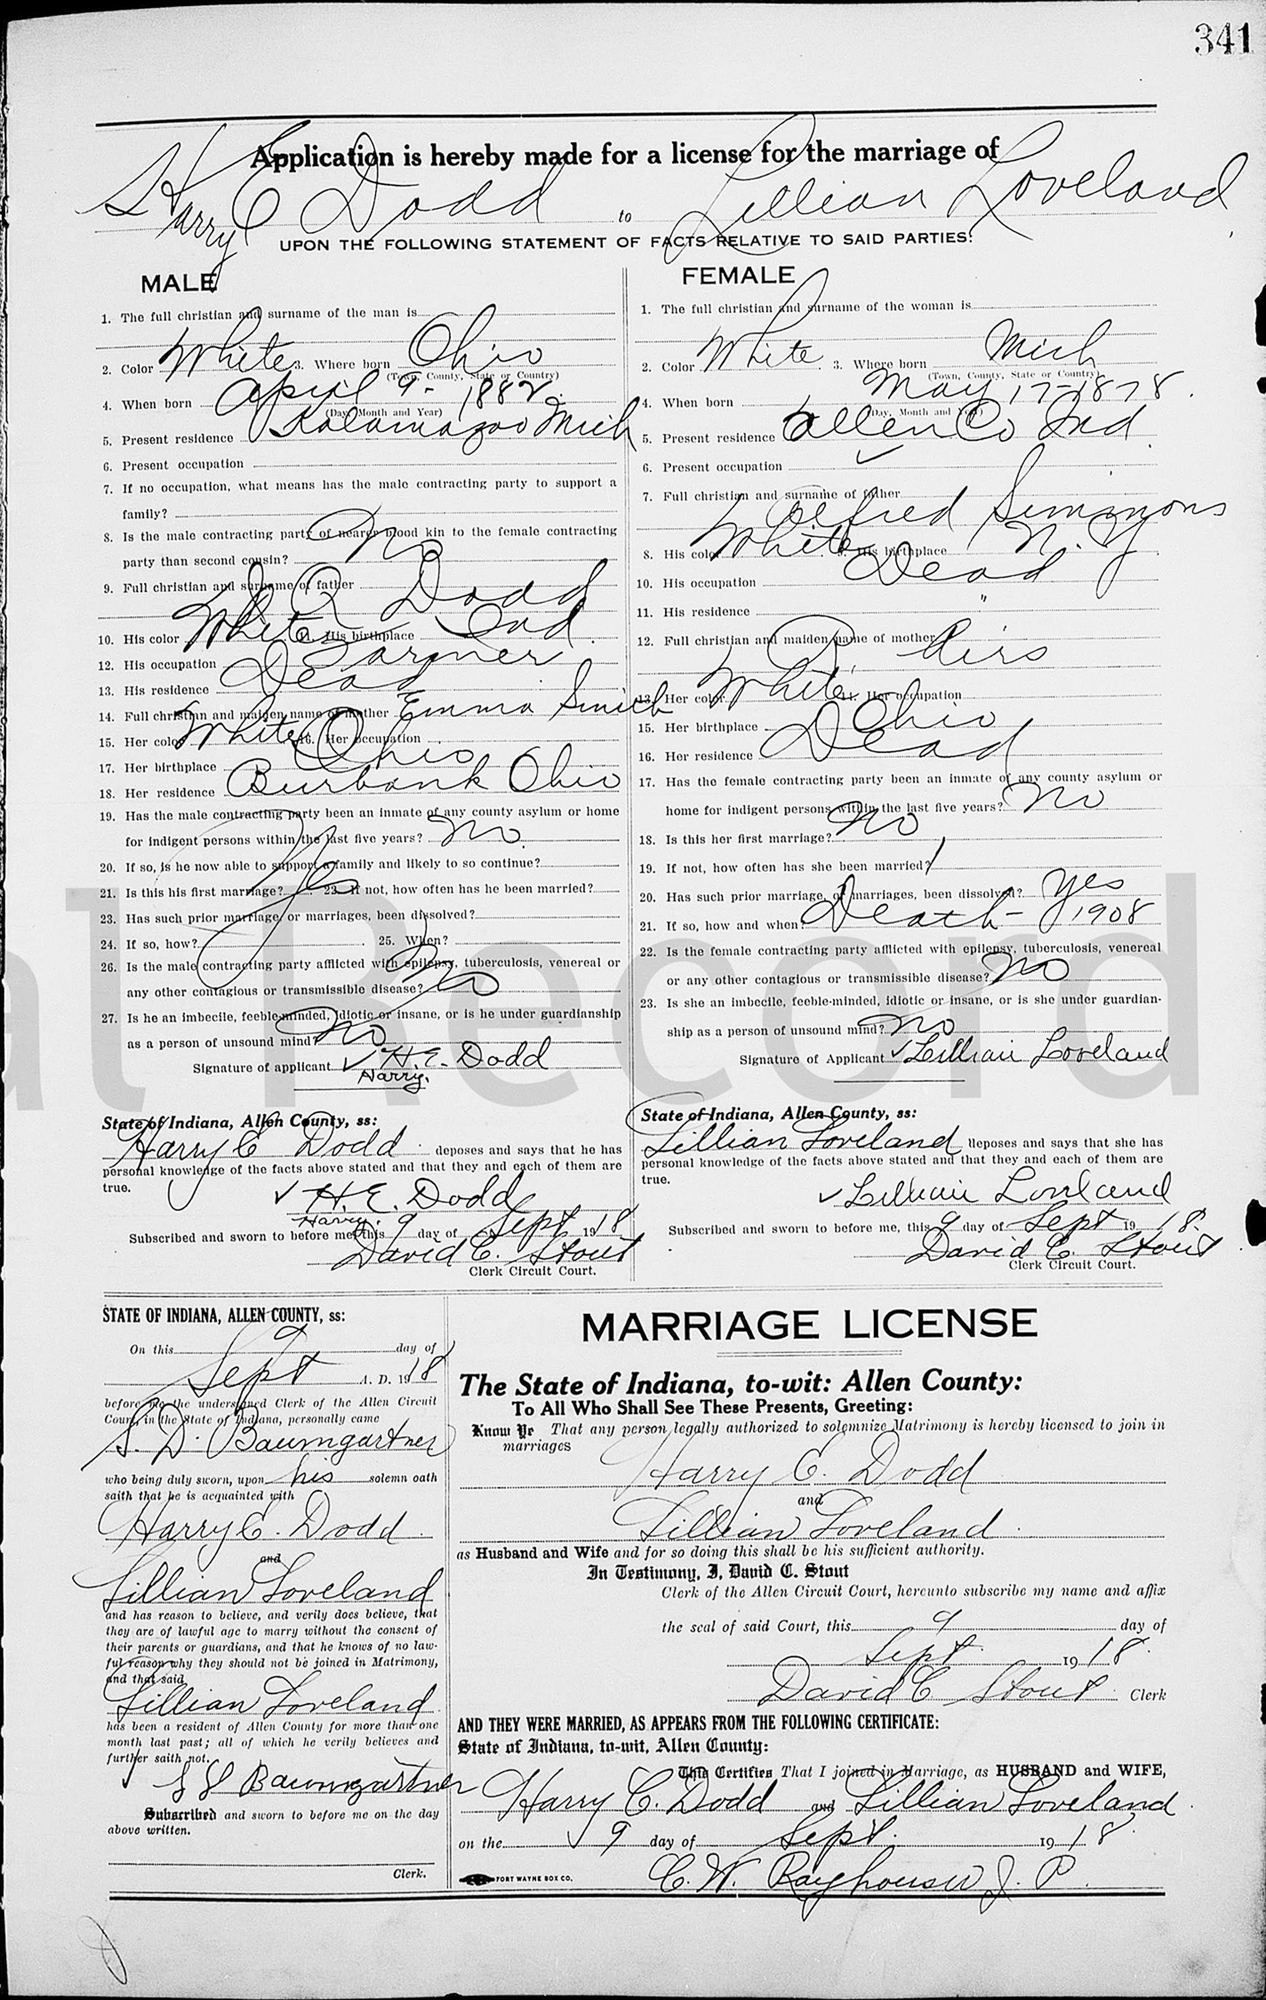 341
Application is hereby made for a license for the marriage of
Harry E Dodd to Lillian Loveland
UPON THE FOLLOWING STATEMENT OF FACTS RELATIVE TO SAID PARTIES:
MALE
1. The full christian and surname of the man is
2. Color White 3. Where born Ohio
(Town, County, State or Country)
4. When born April 9 - 1882.
(Day, Month and Year)
5. Present residence Kalamazoo Mich
6. Present occupation
7. If no occupation, what means has the male contracting party to support a
family?
8. Is the male contracting party of nearer blood kin to the female contracting
party than second cousin? No
9. Full christian and surname of father Dodd
10. His color White 11. His birthplace Ind.
12. His occupation Farmer
13. His residence Dead
14. Full christian and maiden name of mother Emma
15. Her color White 16. Her occupation
17. Her birthplace Ohio
18. Her residence Burbank Ohio
19. Has the male contracting party been an inmate of any county asylum or home
for indigent persons within the last five years? No
20. If so, is he now able to support a family and likely to so continue?
21. Is this his first marriage? Yes 22. If not, how often has he been married?
23. Has such prior marriage, or marriages, been dissolved?
24. If so, how? 25. When?
26. Is the male contracting party afflicted with epilepsy, tuberculosis, venereal or
any other contagious or transmissible disease? No
27. Is he an imbecile, feeble-minded, idiotic or insane, or is he under guardianship
as a person of unsound mind? No
Signature of applicant ✓ H. E. Dodd
Harry.
State of Indiana, Allen County, ss:
Harry E Dodd deposes and says that he has
personal knowledge of the facts above stated and that they and each of them are
true.
✓ H. E. Dodd
Harry.
Subscribed and sworn to before me, this 9 day of Sept 1918
David C. Stout
Clerk Circuit Court.
FEMALE
1. The full christian and surname of the woman is
2. Color White 3. Where born Mich
(Town, County, State or Country)
4. When born May 17-1878.
(Day, Month and Year)
5. Present residence Allen Co Ind.
6. Present occupation ✓
7. Full christian and surname of father
Alfred Simmons
8. His color White 9. His birthplace N. Y.
10. His occupation Dead
11. His residence "
12. Full christian and maiden name of mother
13. Her color White 14. Her occupation
15. Her birthplace Ohio
16. Her residence Dead
17. Has the female contracting party been an inmate of any county asylum or
home for indigent persons within the last five years? No
18. Is this her first marriage? No
19. If not, how often has she been married? 1
20. Has such prior marriage, or marriages, been dissolved? Yes
21. If so, how and when? Death - 1908
22. Is the female contracting party afflicted with epilepsy, tuberculosis, venereal
or any other contagious or transmissible disease? No
23. Is she an imbecile, feeble-minded, idiotic or insane, or is she under guardian-
ship as a person of unsound mind? No
Signature of Applicant ✓ Lillian Loveland
State of Indiana, Allen County, ss:
Lillian Loveland deposes and says that she has
personal knowledge of the facts above stated and that they and each of them are
true.
✓ Lillian Loveland
Subscribed and sworn to before me, this 9 day of Sept 1918.
David C. Stout
Clerk Circuit Court.
STATE OF INDIANA, ALLEN COUNTY, ss:
On this 9 day of
Sept A. D. 1918
before me the undersigned Clerk of the Allen Circuit
Court in the State of Indiana, personally came
S. D. Baumgartner
who being duly sworn, upon his solemn oath
saith that he is acquainted with
Harry E. Dodd
and
Lillian Loveland
and has reason to believe, and verily does believe, that
they are of lawful age to marry without the consent of
their parents or guardians, and that he knows of no law-
ful reason why they should not be joined in Matrimony,
and that said
Lillian Loveland
has been a resident of Allen County for more than one
month last past; all of which he verily believes and
further saith not.
Baumgartner
Subscribed and sworn to before me on the day
above written.
Clerk.
MARRIAGE LICENSE
The State of Indiana, to-wit: Allen County:
To All Who Shall See These Presents, Greeting:
Know Ye That any person legally authorized to solemnize Matrimony is hereby licensed to join in
marriages
Harry E. Dodd
and
Lillian Loveland
as Husband and Wife and for so doing this shall be his sufficient authority.
In Testimony, I, David C. Stout
Clerk of the Allen Circuit Court, hereunto subscribe my name and affix
the seal of said Court, this 9 day of
Sept 1918.
David C Stout Clerk
AND THEY WERE MARRIED, AS APPEARS FROM THE FOLLOWING CERTIFICATE:
State of Indiana, to-wit, Allen County:
This Certifies That I joined in Marriage, as HUSBAND and WIFE,
Harry E. Dodd and Lillian Loveland
on the 9 day of Sept. 1918.
C. W. Rayhouser J. P.
FORT WAYNE BOX CO.
al Record